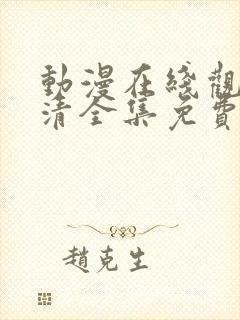 動漫在綫觀
清全集免費
趙克生